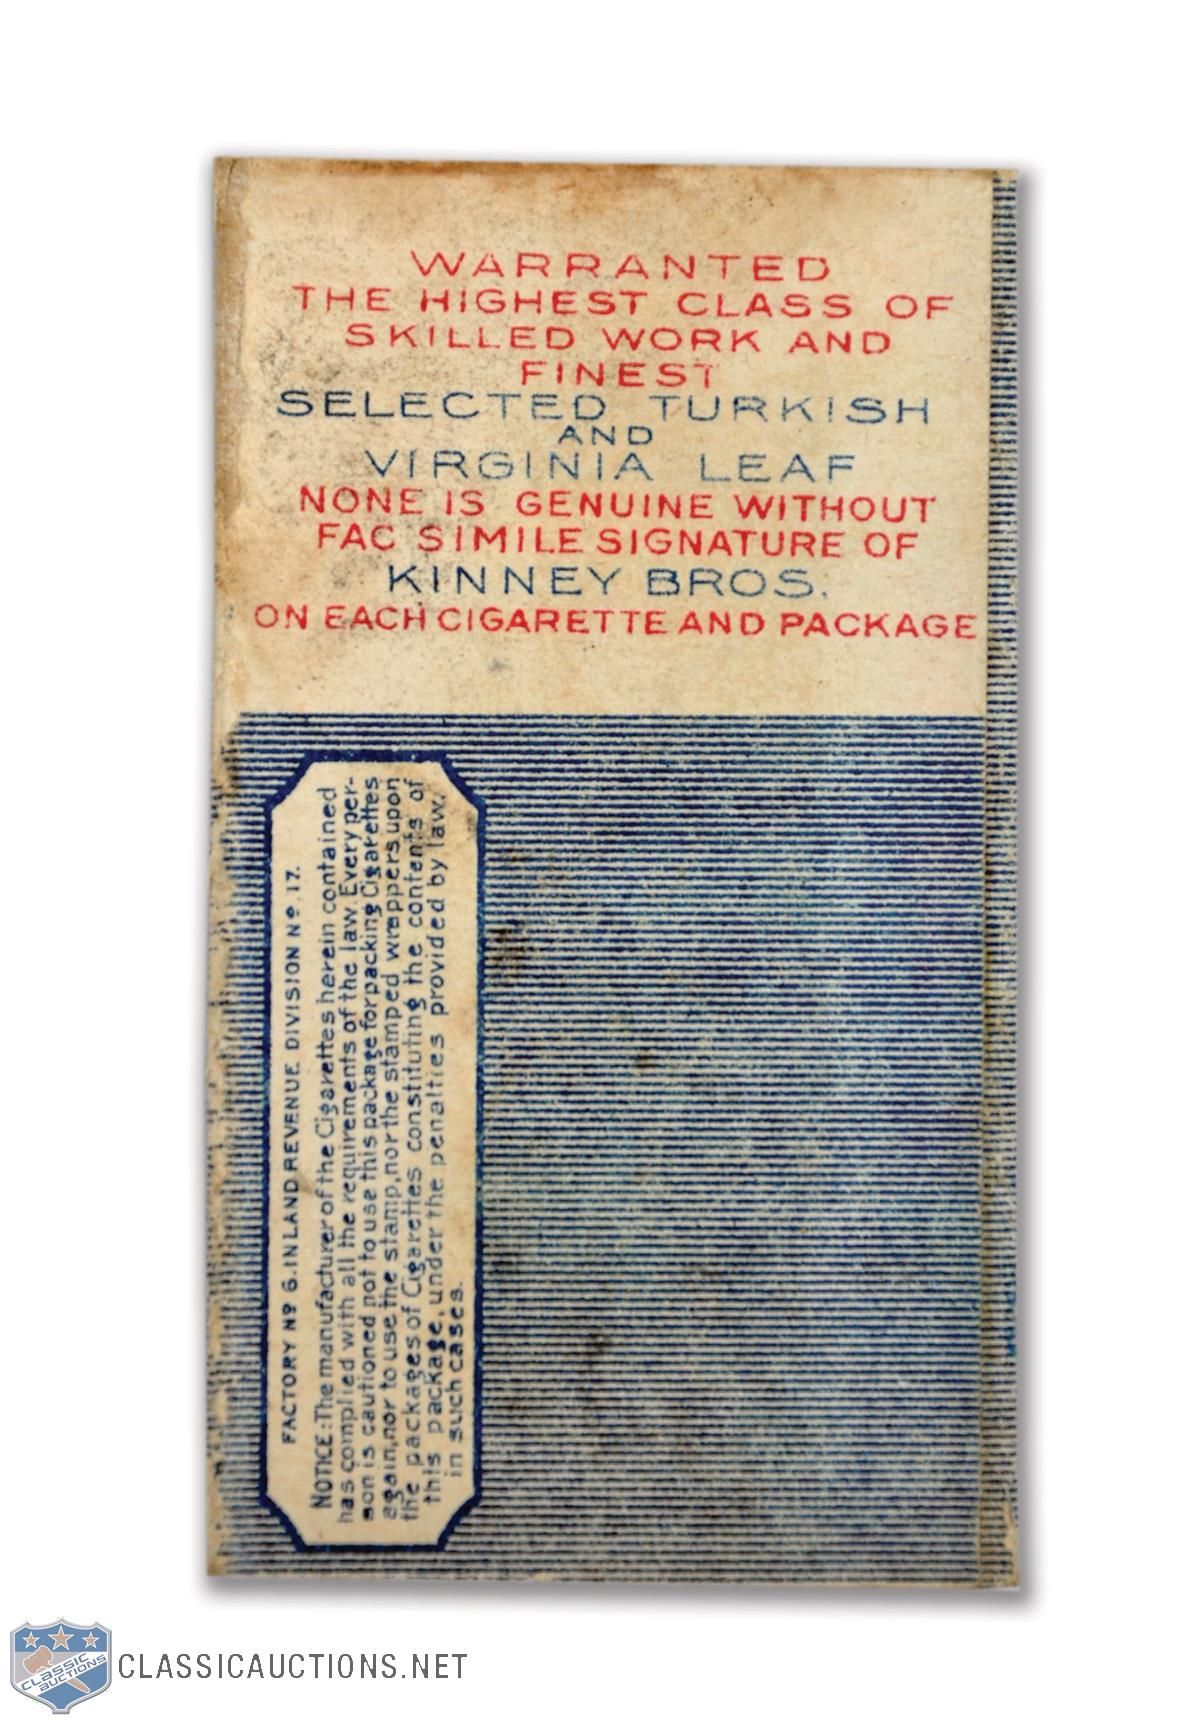 WARRANTED
THE HIGHEST CLASS OF
SKILLED WORK AND
FINEST
SELECTED TURKISH
AND
VIRGINIA LEAF
NONE IS GENUINE WITHOUT
FAC SIMILE SIGNATURE OF
KINNEY BROS.
ON EACH CIGARETTE AND PACKAGE
FACTORY No 6. INLAND REVENUE DIVISION No. 17.
NOTICE: The manufacturer of the Cigarettes herein contained
has complied with all the requirements of the law. Every per-
son is cautioned not to use this package for packing Cigarettes
again, nor to use the stamp, nor the stamped wrappers upon
the packages of Cigarettes constituting the contents of
this package, under the penalties provided by law.
in such cases.
CLASSIC
AUCTIONS
CLASSICAUCTIONS.NET